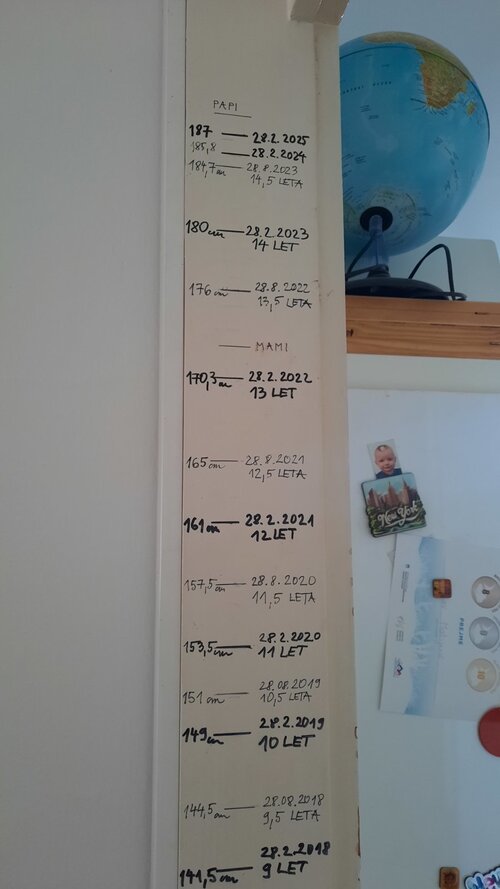 PAPI
187 — 28.2.2025
185,8 — 28.2.2024
184,7cm — 28.8.2023
14,5 LETA
180cm — 28.2.2023
14 LET
176cm — 28.8.2022
13,5 LETA
— MAMI
170,3cm — 28.2.2022
13 LET
165cm — 28.8.2021
12,5 LETA
161cm — 28.2.2021
12 LET
157,5cm — 28.8.2020
11,5 LETA
153,5cm — 28.2.2020
11 LET
151cm — 28.08.2019
10,5 LETA
149cm — 28.2.2019
10 LET
144,5cm — 28.08.2018
9,5 LETA
141,5cm — 28.2.2018
9 LET
New York
PREJME
8
9
10